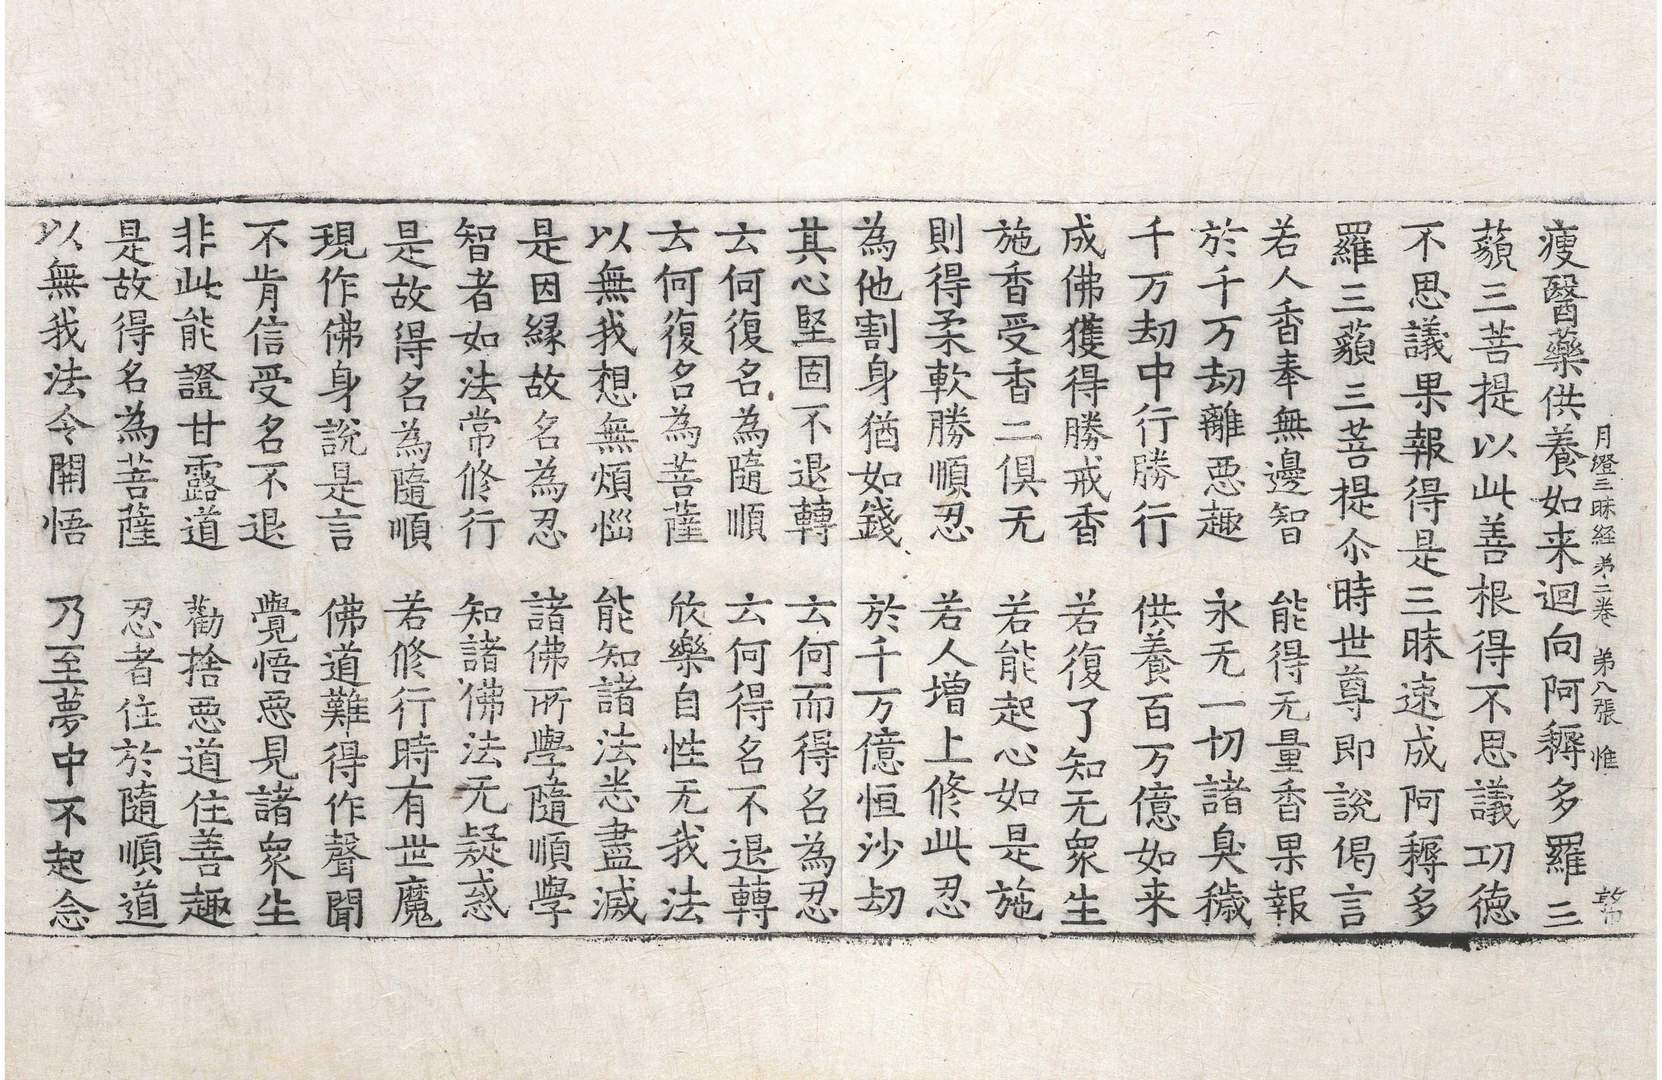 月燈三昧経 弟二卷 弟八張 惟
瘦醫藥供養如来迴向阿耨多羅三
藐三菩提以此善根得不思議功德
不思議果報得是三昧速成阿耨多
羅三藐三菩提尒時世尊即說偈言
若人香奉無邊智 能得无量香果報
於千万劫離惡趣 永无一切諸臭穢
千万劫中行勝行 供養百万億如来
成佛獲得勝戒香 若復了知无眾生
施香受香二俱无 若能起心如是施
則得柔軟勝順忍 若人增上修此忍
為他割身猶如錢 於千万億恒沙劫
其心堅固不退轉 云何而得名為忍
云何復名為隨順 云何得名不退轉
云何復名為菩薩 欣樂自性无我法
以無我想無煩惱 能知諸法悉盡滅
是因緣故名為忍 諸佛所學隨順學
智者如法常修行 知諸佛法无疑惑
是故得名為隨順 若修行時有世魔
現作佛身說是言 佛道難得作聲聞
不肯信受名不退 覺悟惡見諸眾生
非此能證甘露道 勸捨惡道住善趣
是故得名為菩薩 忍者住於隨順道
以無我法令開悟 乃至夢中不起念